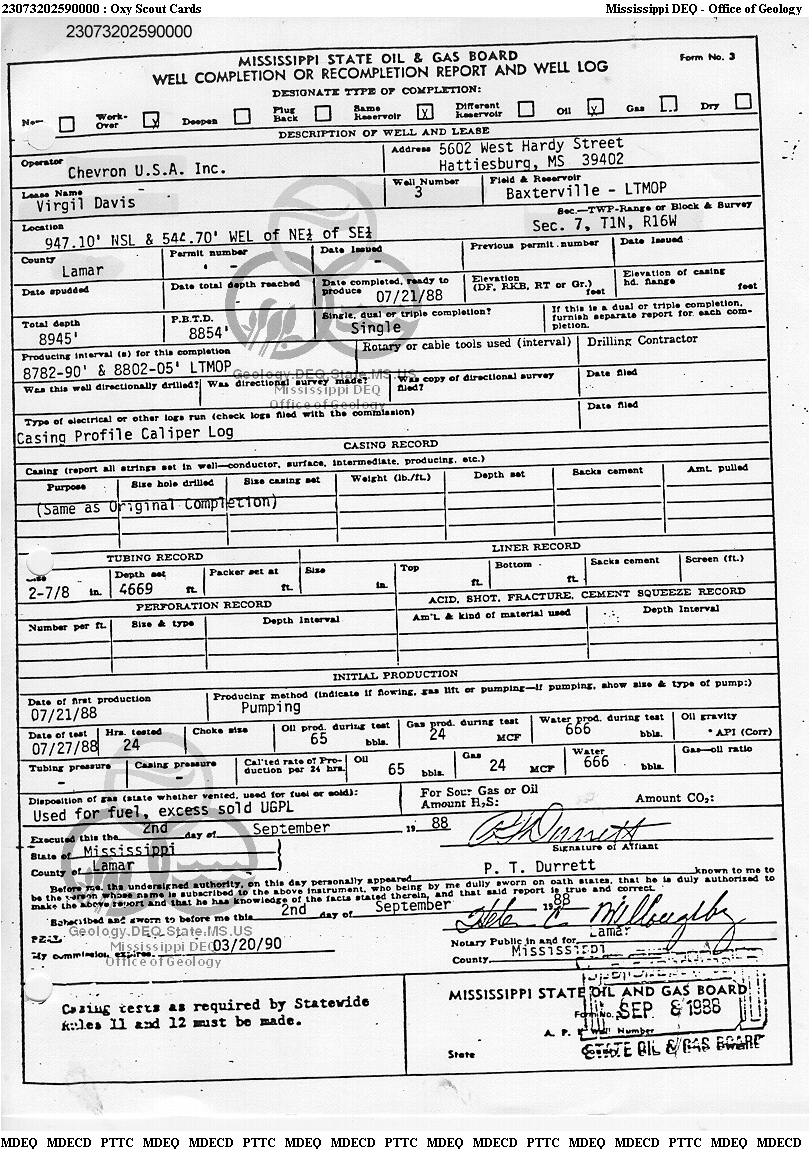 23073202590000 : Oxy Scout Cards Mississippi DEQ - Office of Geology
23073202590000
MISSISSIPPI STATE OIL & GAS BOARD Form No. 3
WELL COMPLETION OR RECOMPLETION REPORT AND WELL LOG
DESIGNATE TYPE OF COMPLETION:
New Work-Over X Deepen Plug Back Same Reservoir X Different Reservoir Oil X Gas Dry
DESCRIPTION OF WELL AND LEASE
Operator Chevron U.S.A. Inc. Address 5602 West Hardy Street
Hattiesburg, MS 39402
Lease Name Virgil Davis Well Number 3 Field & Reservoir Baxterville - LTMOP
Location 947.10' NSL & 544.70' WEL of NE¼ of SE¼ Sec.—TWP-Range or Block & Survey Sec. 7, T1N, R16W
County Lamar Permit number - - Date Issued - Previous permit number Date Issued
Date spudded Date total depth reached Date completed, ready to produce 07/21/88 Elevation (DF, RKB, RT or Gr.) feet Elevation of casing hd. flange feet
Total depth 8945' P.B.T.D. 8854' Single, dual or triple completion? Single If this is a dual or triple completion, furnish separate report for each completion.
Producing interval (s) for this completion 8782-90' & 8802-05' LTMOP Rotary or cable tools used (interval) Drilling Contractor
Geology.DEQ.State.MS.US
Mississippi DEQ
Office of Geology
Was this well directionally drilled? Was directional survey made? Was copy of directional survey filed? Date filed
Type of electrical or other logs run (check logs filed with the commission) Date filed
Casing Profile Caliper Log
CASING RECORD
Casing (report all strings set in well—conductor, surface, intermediate, producing, etc.)
Purpose Size hole drilled Size casing set Weight (lb./ft.) Depth set Sacks cement Amt. pulled
(Same as Original Completion)
TUBING RECORD LINER RECORD
Size 2-7/8 in. Depth set 4669 ft. Packer set at ft. Size in. Top ft. Bottom ft. Sacks cement Screen (ft.)
PERFORATION RECORD ACID, SHOT, FRACTURE, CEMENT SQUEEZE RECORD
Number per ft. Size & type Depth Interval Am't. & kind of material used Depth Interval
INITIAL PRODUCTION
Date of first production 07/21/88 Producing method (indicate if flowing, gas lift or pumping—if pumping, show size & type of pump:) Pumping
Date of test 07/27/88 Hrs. tested 24 Choke size Oil prod. during test 65 bbls. Gas prod. during test 24 MCF Water prod. during test 666 bbls. Oil gravity ° API (Corr)
Tubing pressure - Casing pressure - Cal'ted rate of Production per 24 hrs. Oil 65 bbls. Gas 24 MCF Water 666 bbls. Gas—oil ratio
Disposition of gas (state whether vented, used for fuel or sold): For Sour Gas or Oil
Used for fuel, excess sold UGPL Amount H2S: Amount CO2:
Executed this the 2nd day of September 19 88 P T Durrett
State of Mississippi Signature of Affiant
County of Lamar P. T. Durrett
Before me, the undersigned authority, on this day personally appeared known to me to
be the person whose name is subscribed to the above instrument, who being by me dully sworn on oath states, that he is duly authorized to
make the above report and that he has knowledge of the facts stated therein, and that said report is true and correct.
Subscribed and sworn to before me this 2nd day of September 19 88 Helen C. Willoughby
Geology.DEQ.State.MS.US
Mississippi DEQ
Office of Geology
My commission expires 03/20/90 Notary Public in and for Lamar
County, Mississippi
Casing tests as required by Statewide
Rules 11 and 12 must be made.
MISSISSIPPI STATE OIL AND GAS BOARD
Form No. 3
SEP 8 1988
A. P. I. Well Number
State
STATE OIL & GAS BOARD
MDEQ MDECD PTTC MDEQ MDECD PTTC MDEQ MDECD PTTC MDEQ MDECD PTTC MDEQ MDECD PTTC MDEQ MDECD